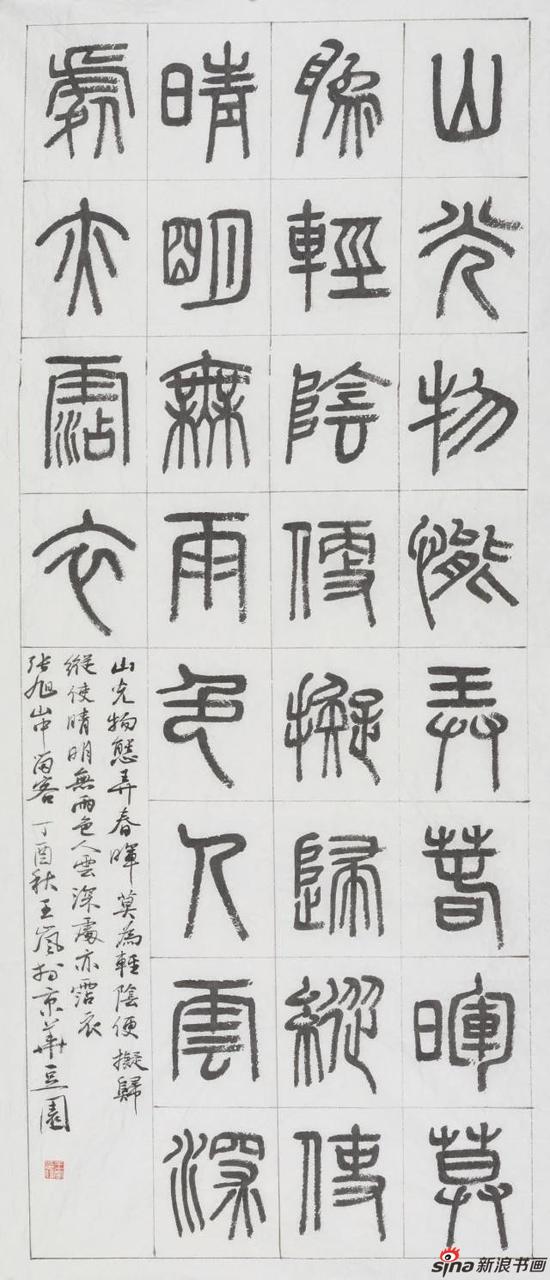 山光物態弄春暉莫
為輕陰便擬歸縱使
晴明無雨色入雲深
處亦霑衣
山光物態弄春暉 莫為輕陰便擬歸
縱使晴明無雨色入雲深處亦霑衣
張旭山中留客 丁酉秋王嵐於京華豆園
sina新浪书画